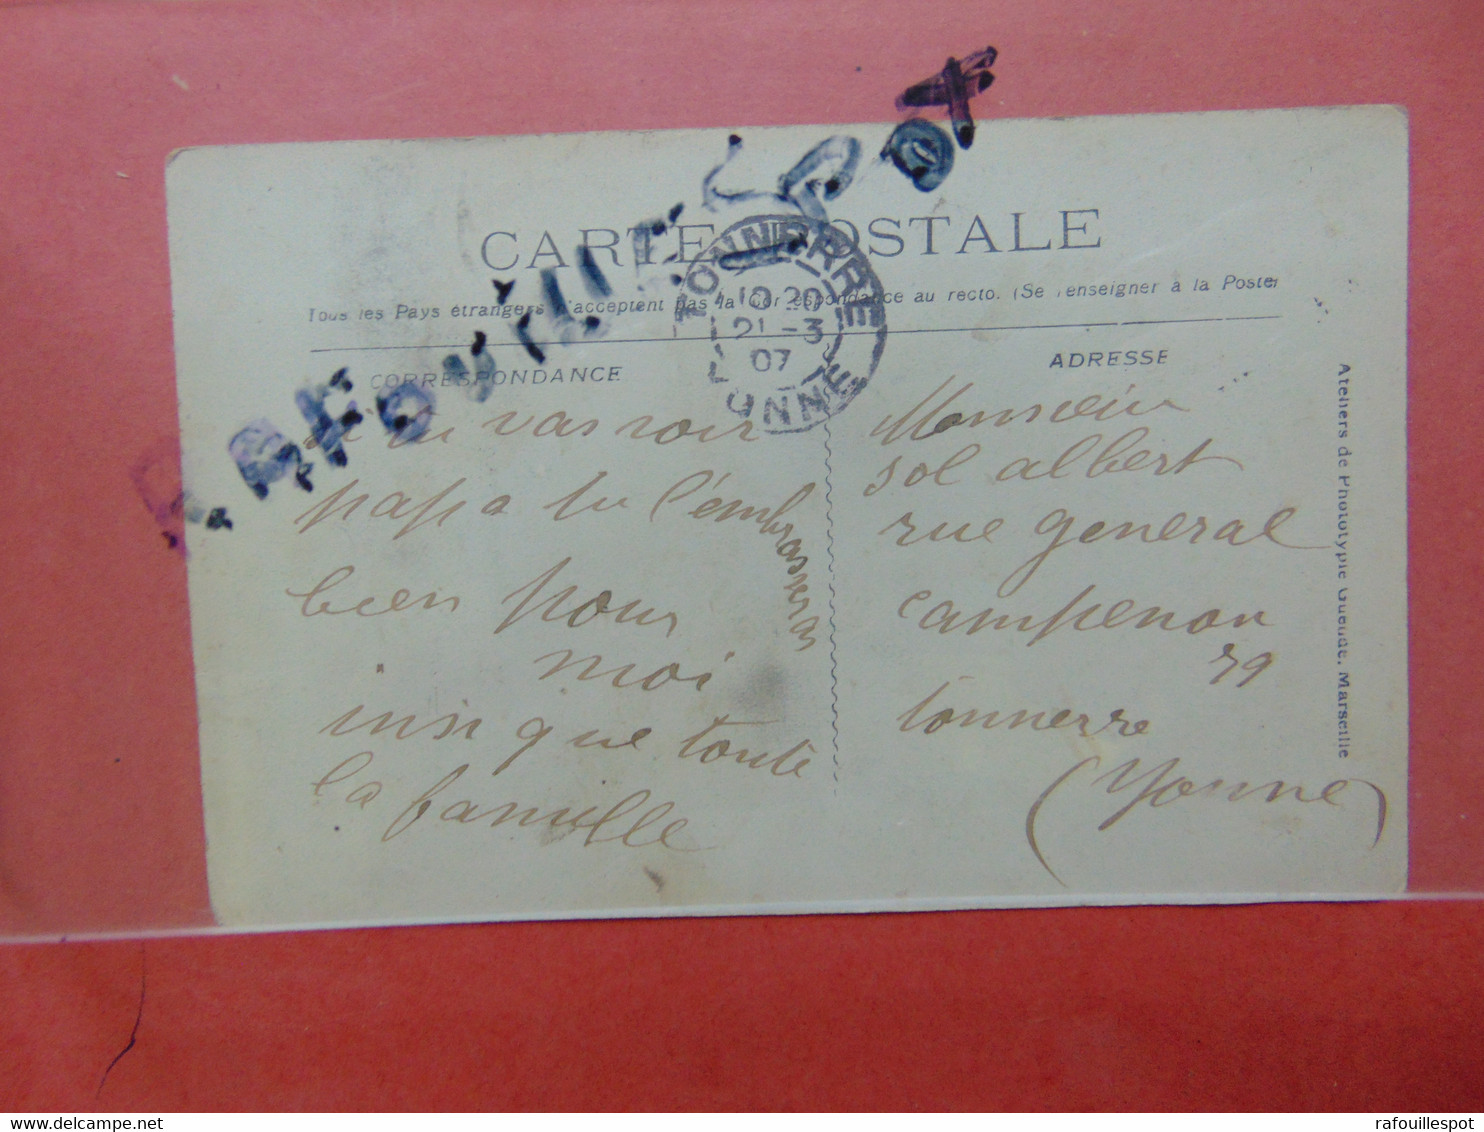 RAFOUILLESPOT
CARTE POSTALE
Tous les Pays étrangers n'acceptent pas la Correspondance au recto. (Se renseigner à la Poste)
TONNERRE
10 20
21 - 3
07
YONNE
CORRESPONDANCE
si tu vas voir
papa tu l'embrasseras
bien pour
moi
insi que toute
la famille
ADRESSE
Monsieur
sol albert
rue general
campenon
79
tonnerre
(Yonne)
Ateliers de Phototypie Guende, Marseille
rafouillespot